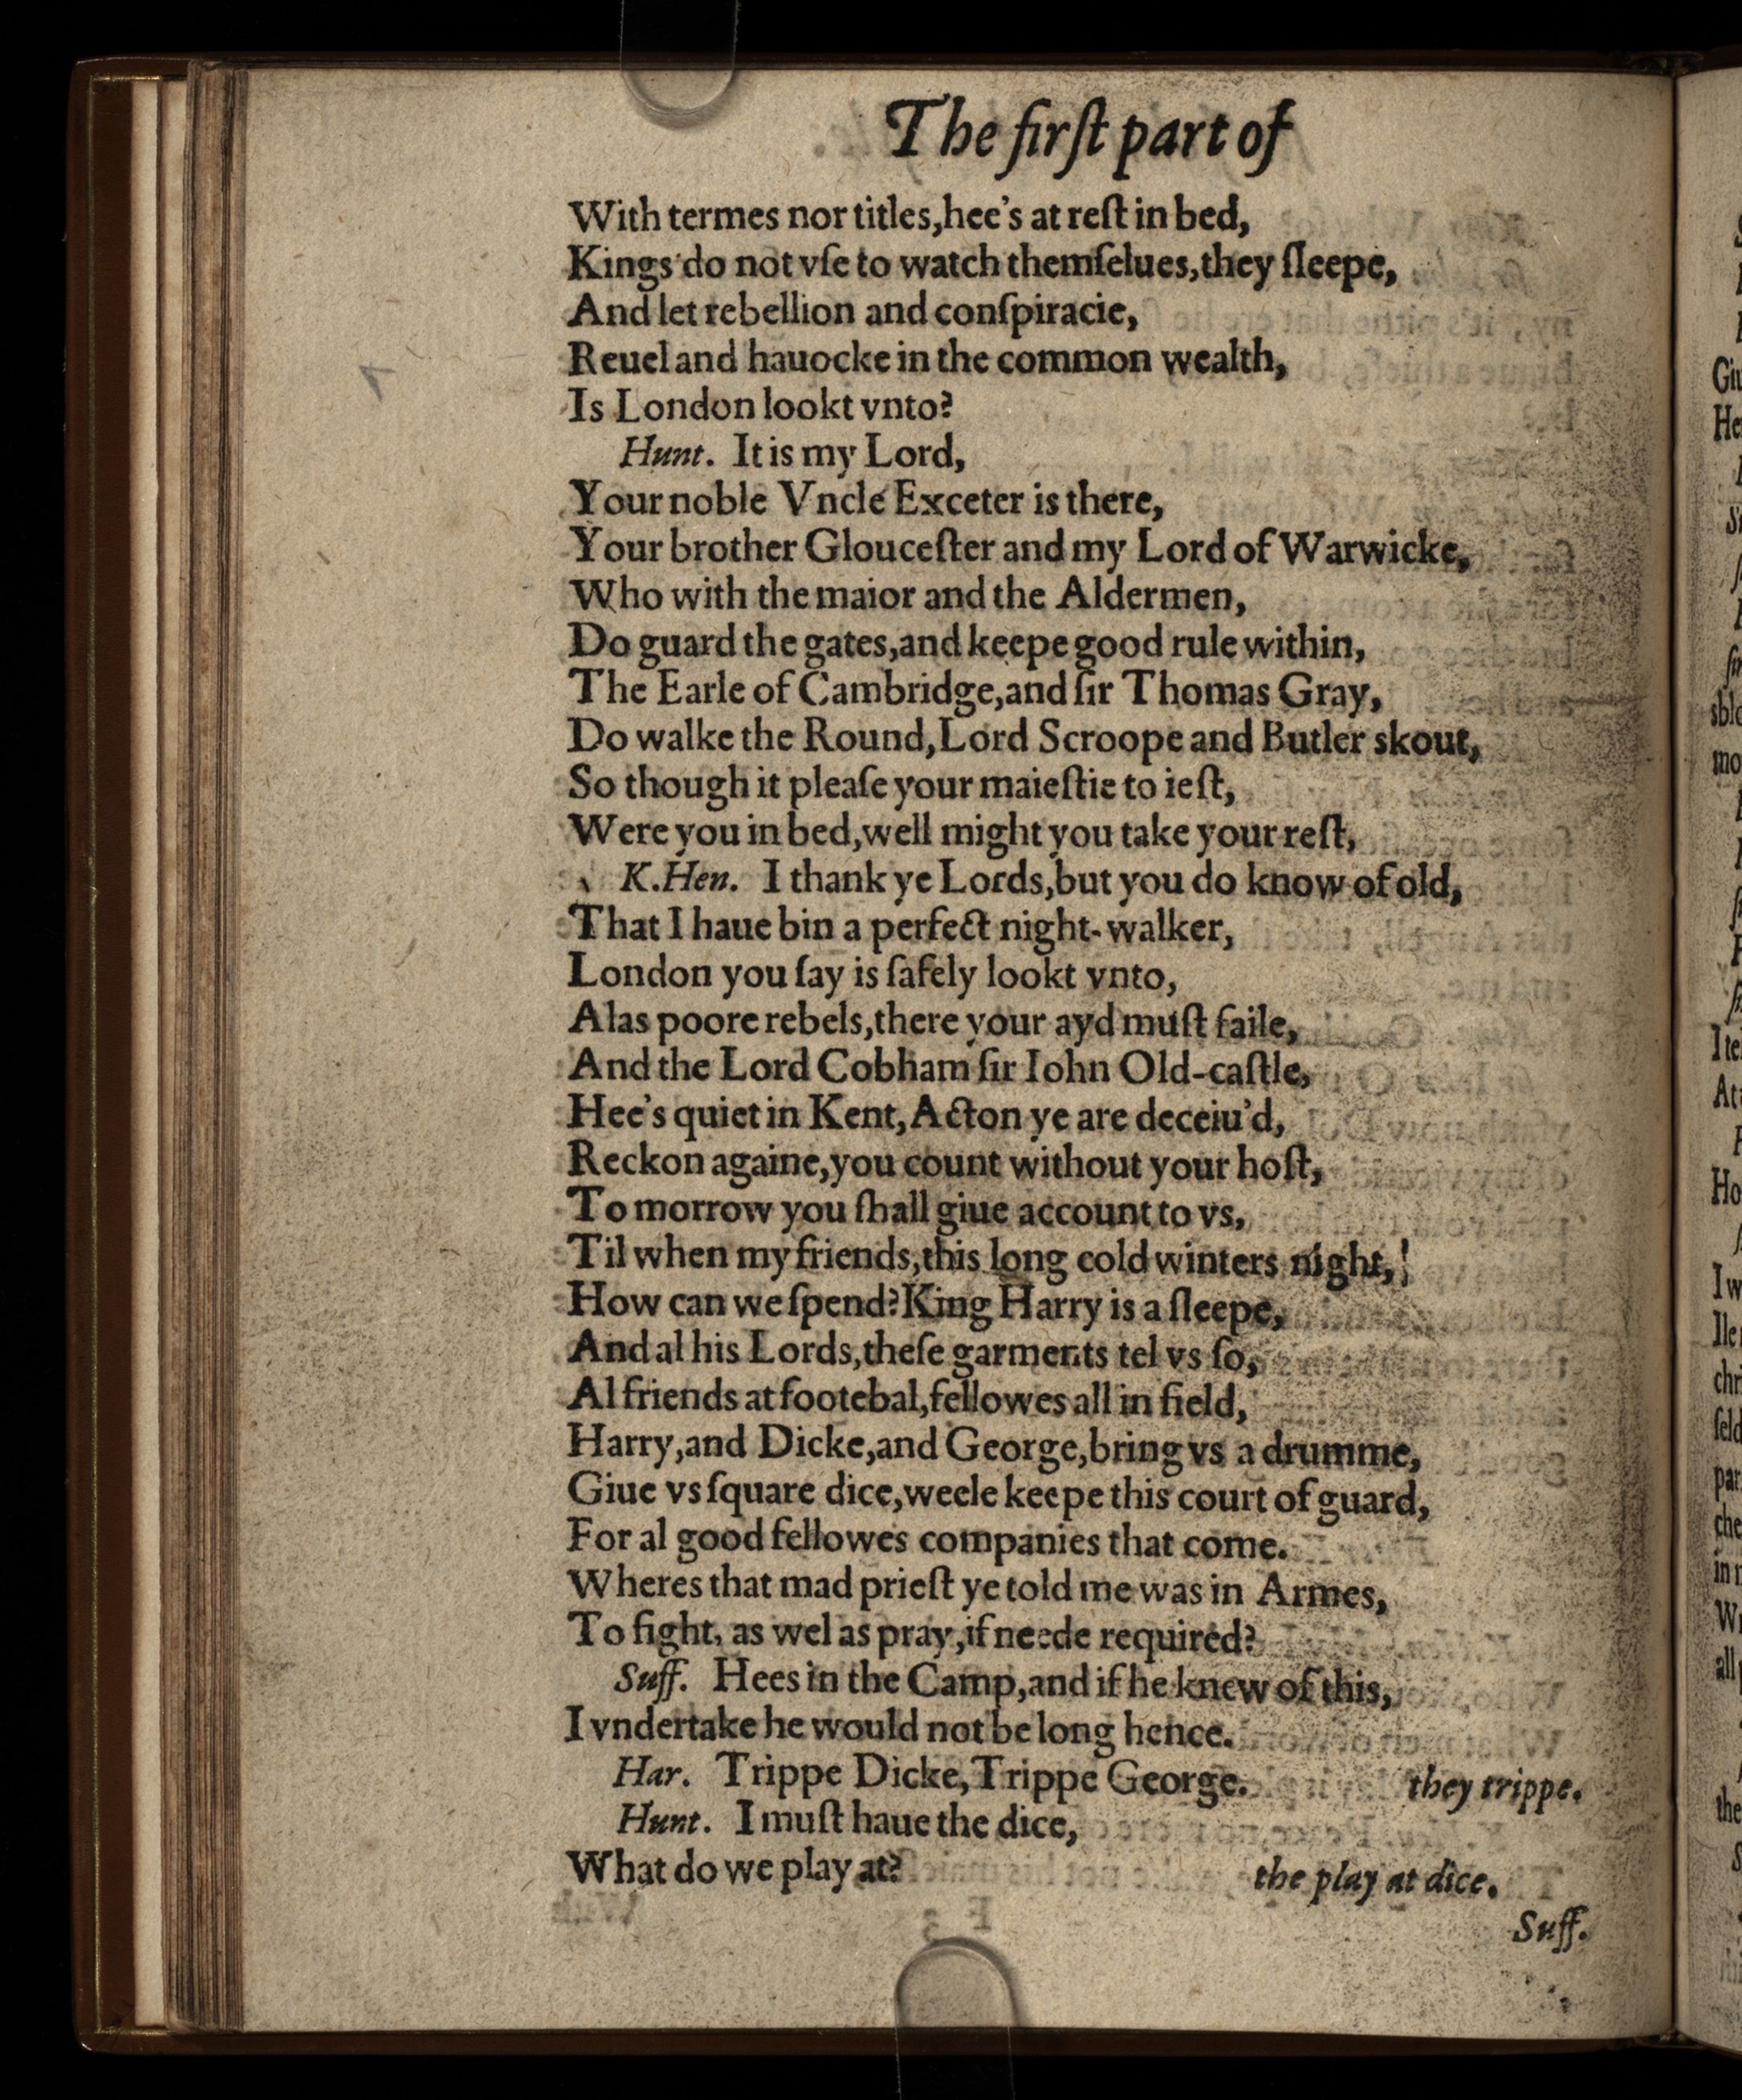 The firſt part of
With termes nor titles,hee's at reſt in bed,
Kings do not vſe to watch themſelues,they ſleepe,
And let rebellion and conſpiracie,
Reuel and hauocke in the common wealth,
Is London lookt vnto?
Hunt. It is my Lord,
Your noble Vncle Exceter is there,
Your brother Glouceſter and my Lord of Warwicke,
Who with the maior and the Aldermen,
Do guard the gates,and keepe good rule within,
The Earle of Cambridge,and ſir Thomas Gray,
Do walke the Round,Lord Scroope and Butler skout,
So though it pleaſe your maieſtie to ieſt,
Were you in bed,well might you take your reſt,
K.Hen. I thank ye Lords,but you do know of old,
That I haue bin a perfect night-walker,
London you ſay is ſafely lookt vnto,
Alas poore rebels,there your ayd muſt faile,
And the Lord Cobham ſir Iohn Old-caſtle,
Hee's quiet in Kent,Acton ye are deceiu'd,
Reckon againe,you count without your hoſt,
To morrow you ſhall giue account to vs,
Til when my friends,this long cold winters night,!
How can we ſpend?King Harry is a ſleepe,
And al his Lords,theſe garments tel vs ſo,
Al friends at footebal,fellowes all in field,
Harry,and Dicke,and George,bring vs a drumme,
Giue vs ſquare dice,weele keepe this court of guard,
For al good fellowes companies that come.
Wheres that mad prieſt ye told me was in Armes,
To fight, as wel as pray,if neede required?
Suff. Hees in the Camp,and if he knew of this,
I vndertake he would not be long hence.
Har. Trippe Dicke,Trippe George. they trippe.
Hunt. I muſt haue the dice,
What do we play at? the play at dice.
Suff.